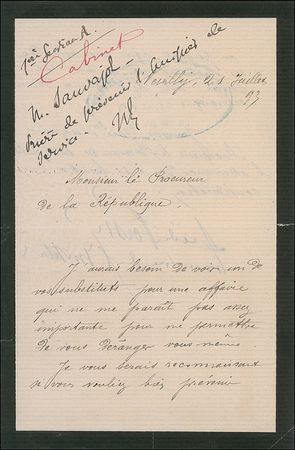 1ère Section A.
Cabinet
M. Sauvajol
Prière de prévenir l'huissier de
service.
Neuilly, 21 Juillet
93
Monsieur le Procureur
de la République
J'aurais besoin de voir un de
vos substituts pour une affaire
qui ne me paraît pas assez
importante pour me permettre
de vous déranger vous-même.
Je vous serais reconnaissant
si vous vouliez bien prévenir